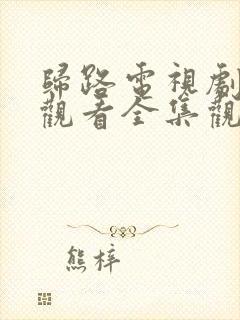 歸路電視劇
觀看全集觀
熊梓